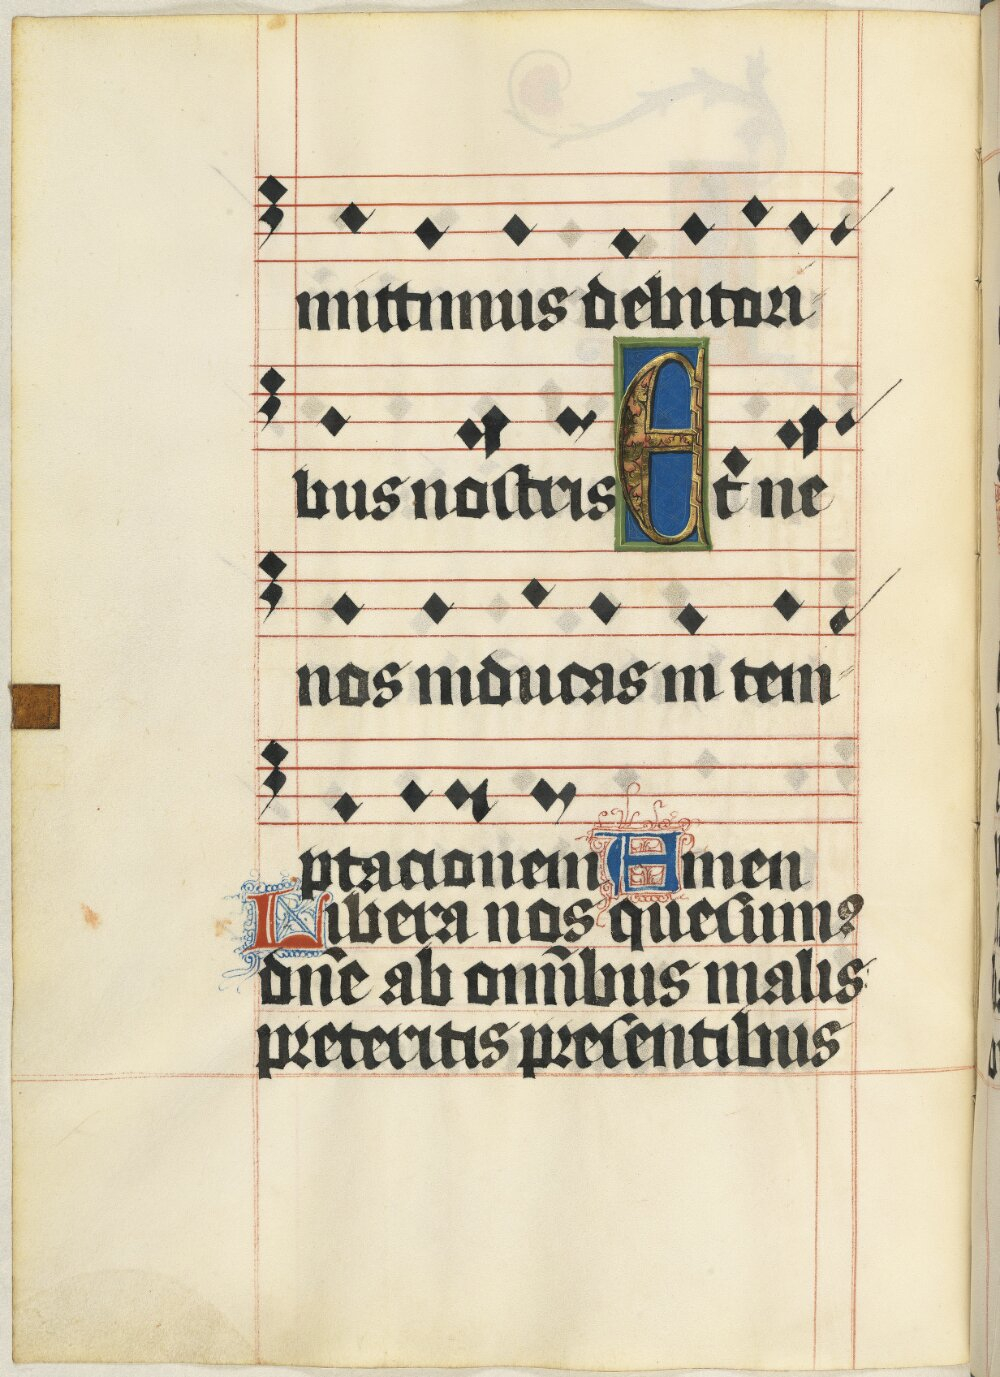 mittimus debitori
bus nostris Et ne
nos inducas in tem
ptacionem Amen
Libera nos quesum⁹
dn̄e ab om̄ibus malis
preteritis presentibus